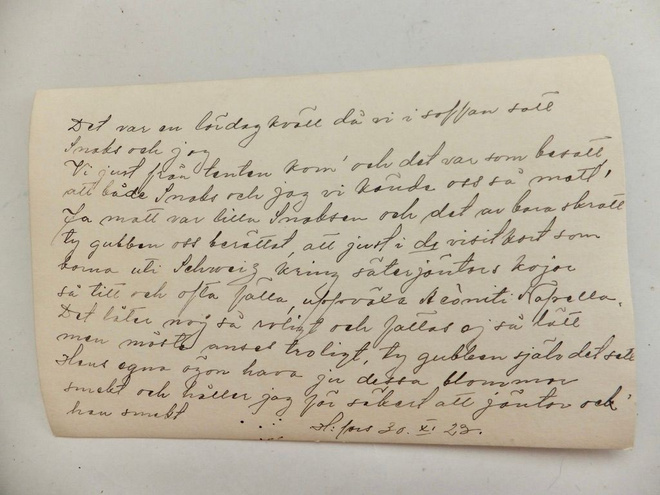 Det var en lördag kväll då vi i soffan satt
Snabs och jag
Vi just från tenten kom' och det var som besatt
att både Snabs och jag vi kände oss så matt,
Ja matt var lilla Snabsen och det av bara skratt
ty gubben oss berättat, att just i de visitkort som
korna uti Schweiz, kring säterjäntors kojor
så titt och ofta fälla, uppväxa Aconiti Napella.
Det låter nog så roligt och fattas ej så lätt
men måste anses troligt, ty gubben själv det sett
Hans egna ögon hava ju dessa blommor
smekt och håller jag för säkert att jäntor och
han smekt
H:fors 30. XI 23.